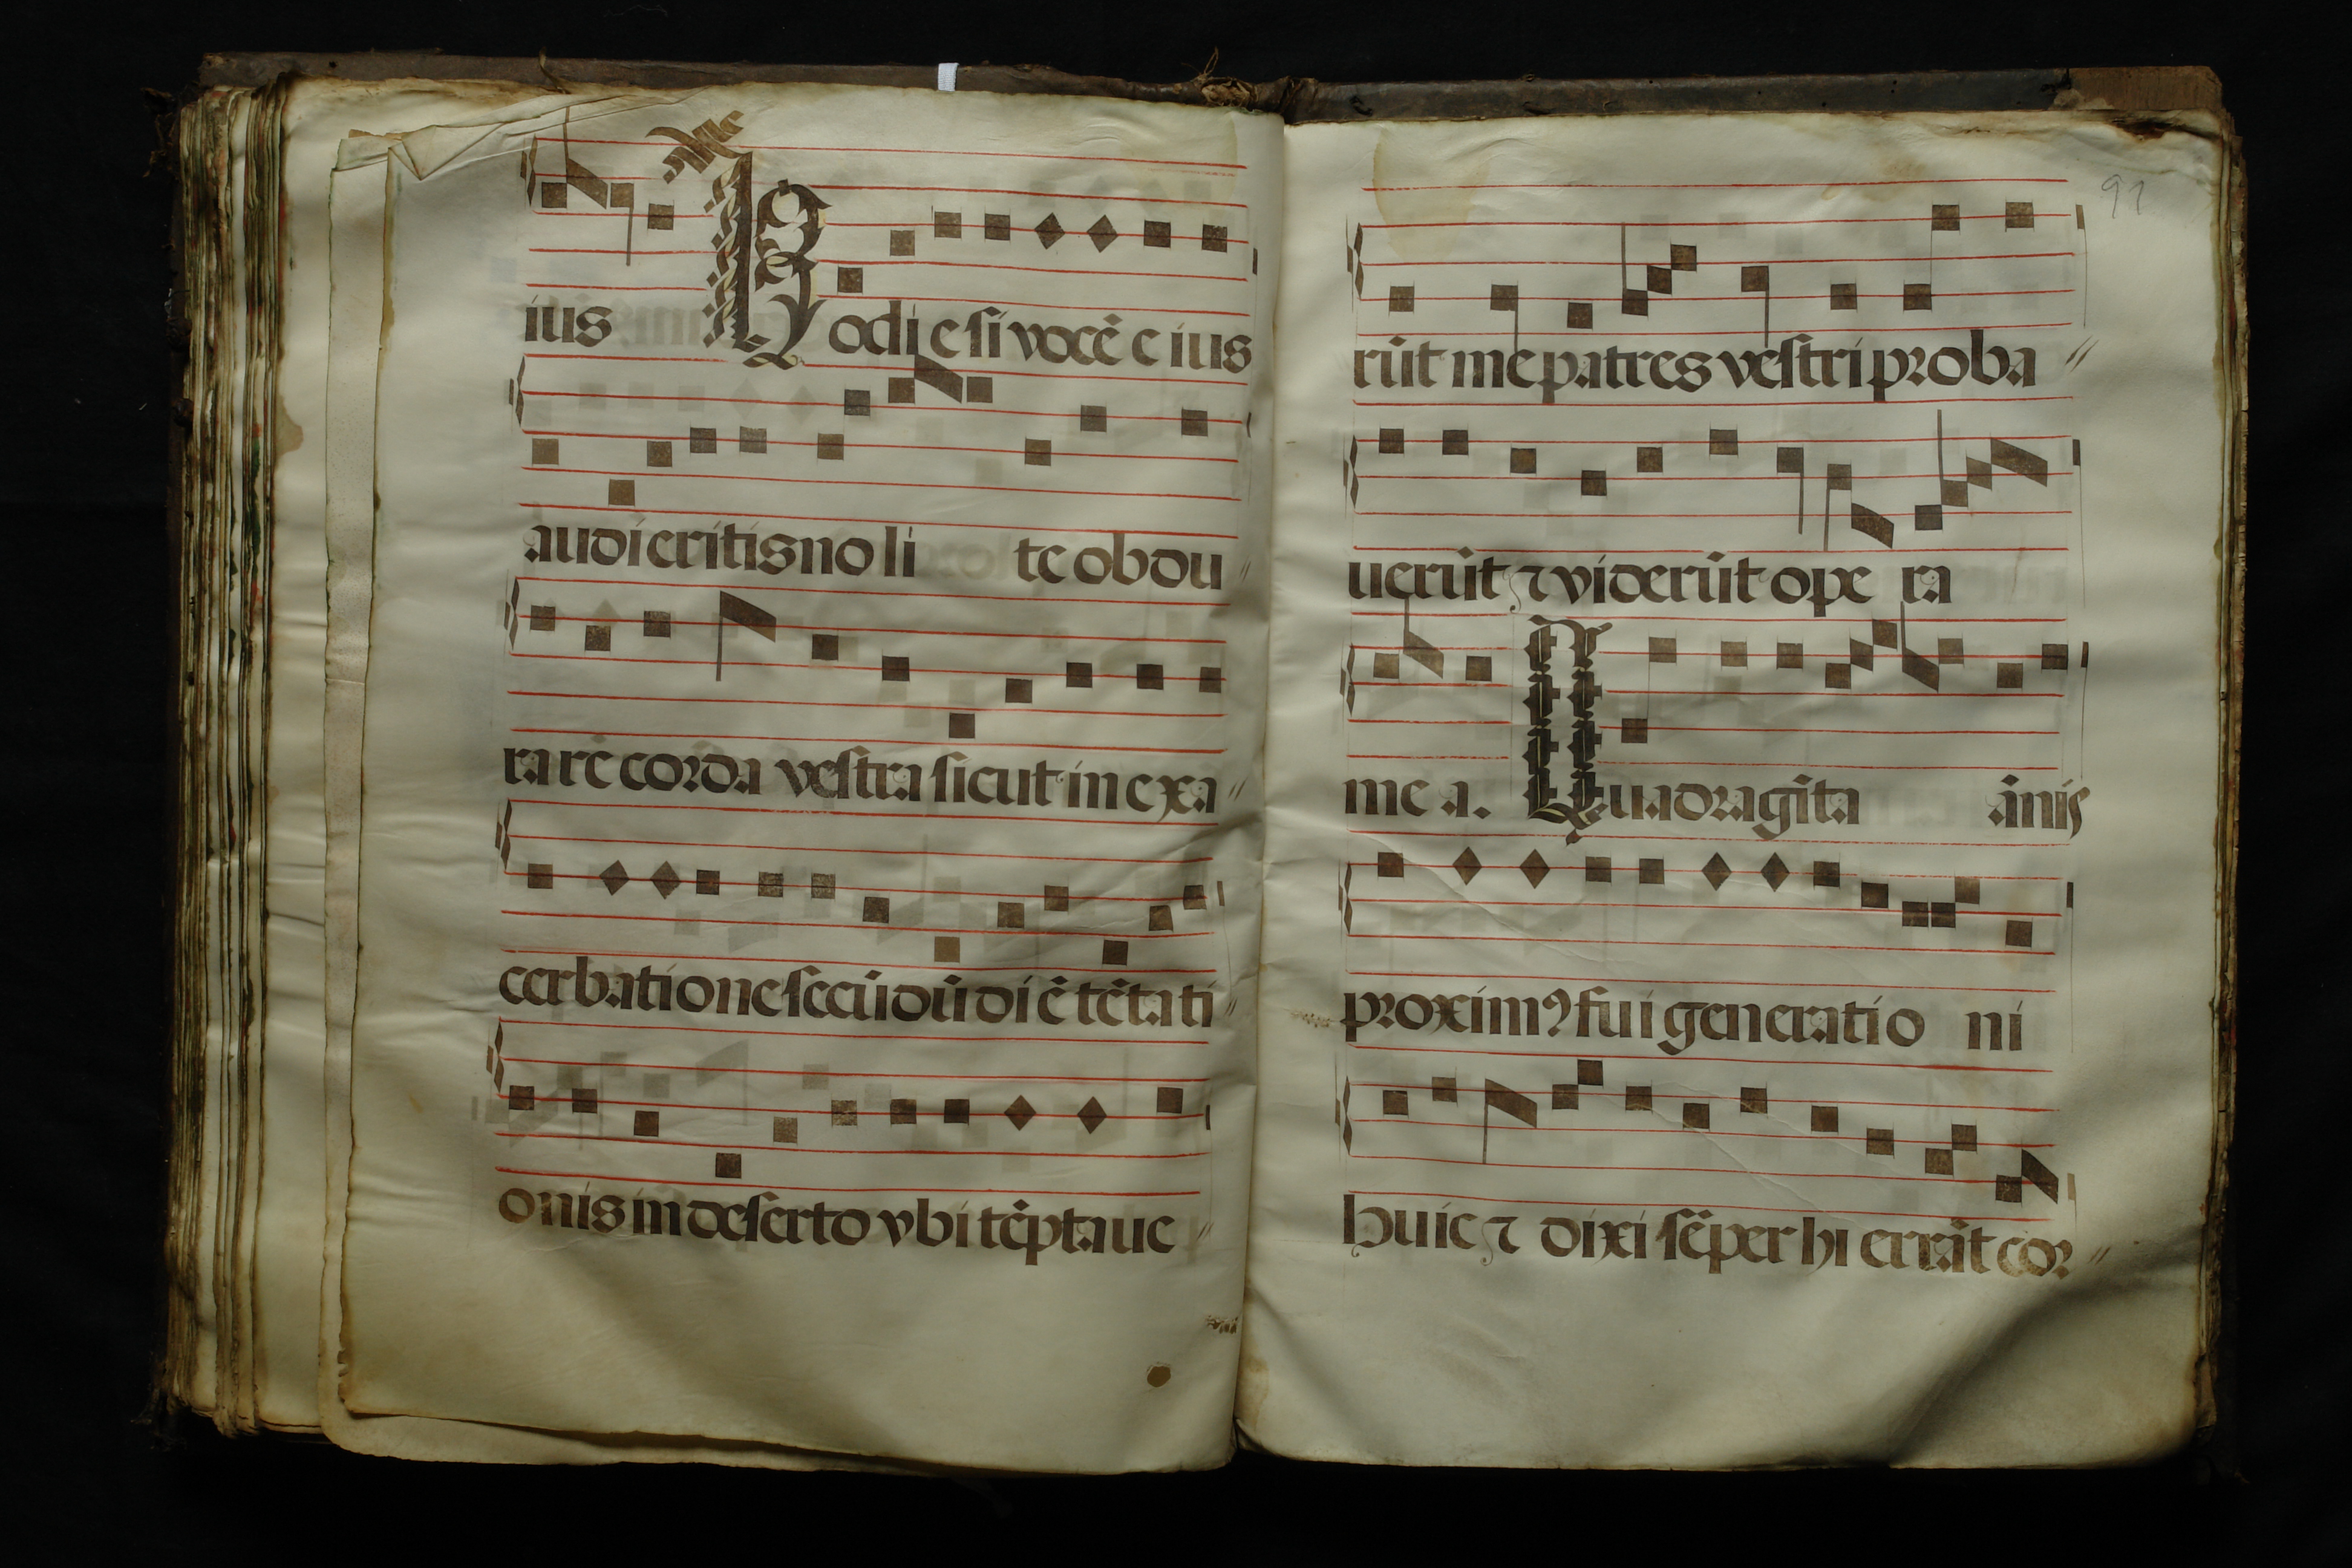 ius Hodie si vocē eius
audieritis noli te obdu〃
rare corda vestra sicut in exa〃
cerbatione secūdū diē tētati〃
onis in deserto vbi tēptaue〃
91
rūt me patres vestri proba〃
uerūt ⁊ viderūt opera
mea. Quadragīta ānis
proximꝰ fui generationi
huic ⁊ dixi sēper hi errāt cor〃